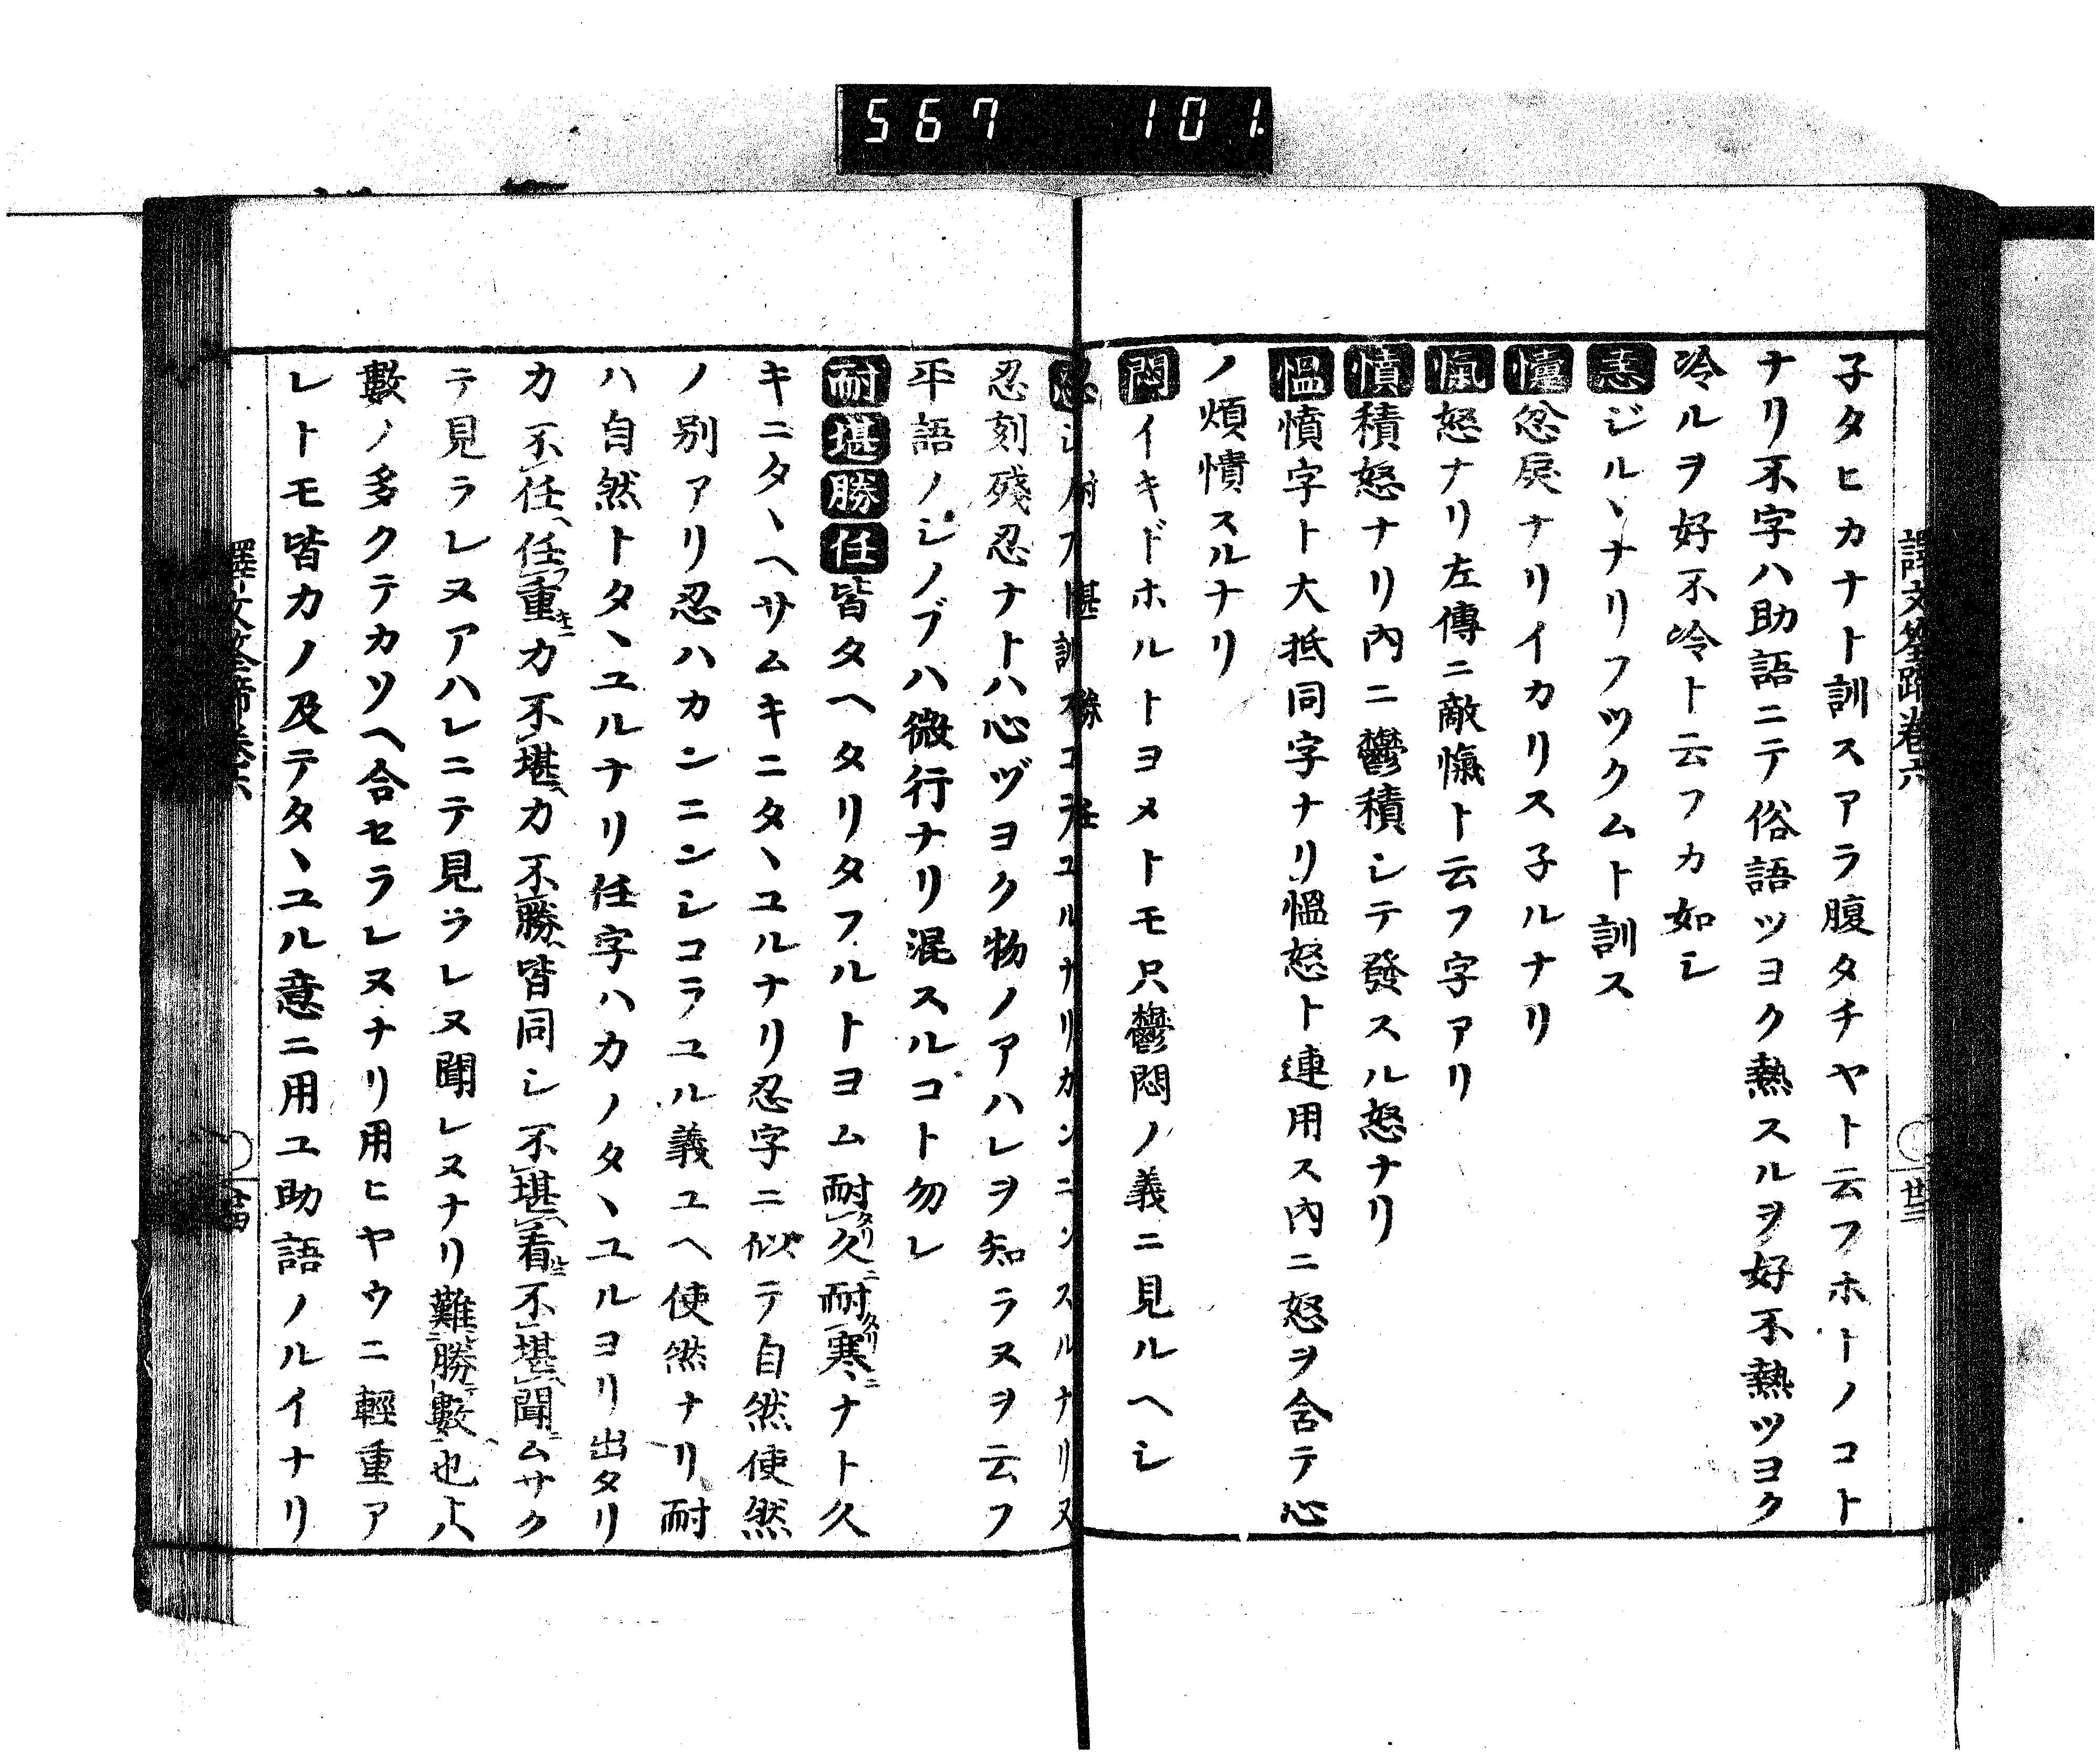 567 101
譯文筌蹄卷六
子タヒカナト訓スアラ腹タチヤト云フホトノコト
ナリ不字ハ助語ニテ俗語ツヨク熱スルヲ好不熱ツヨク
冷ルヲ好不冷ト云フカ如シ
恚ジルヽナリフツクムト訓ス
懥忿戾ナリイカリス子ルナリ
愾怒ナリ左傳ニ敵愾ト云フ字アリ
憤積怒ナリ內ニ鬱積シテ發スル怒ナリ
慍憤字ト大抵同字ナリ慍怒ト連用ス內ニ怒ヲ含テ心
ノ煩憤スルナリ
悶イキドホルトヨメトモ只鬱悶ノ義ニ見ルヘシ
忍コラユルナリカンニンスルナリ又
忍刻殘忍ナトハ心ヅヨク物ノアハレヲ知ラヌヲ云フ
平語ノシノブハ微行ナリ混スルコト勿レ
耐堪勝任皆タヘタリタフルトヨム耐久耐寒ナト久
キニタヽヘサムキニタヽユルナリ忍字ニ似テ自然使然
ノ別アリ忍ハカンニンシコラユル義ユヘ使然ナリ耐
ハ自然トタヽユルナリ任字ハカノタヽユルヨリ出タリ
力不任任重力不堪力不勝皆同シ不堪看不堪聞ムサク
テ見ラレヌアハレニテ見ラレヌ聞レヌナリ難勝數也ハ
數ノ多クテカソヘ合セラレヌナリ用ヒヤウニ輕重ア
レトモ皆力ノ及テタヽユル意ニ用ユ助語ノルイナリ